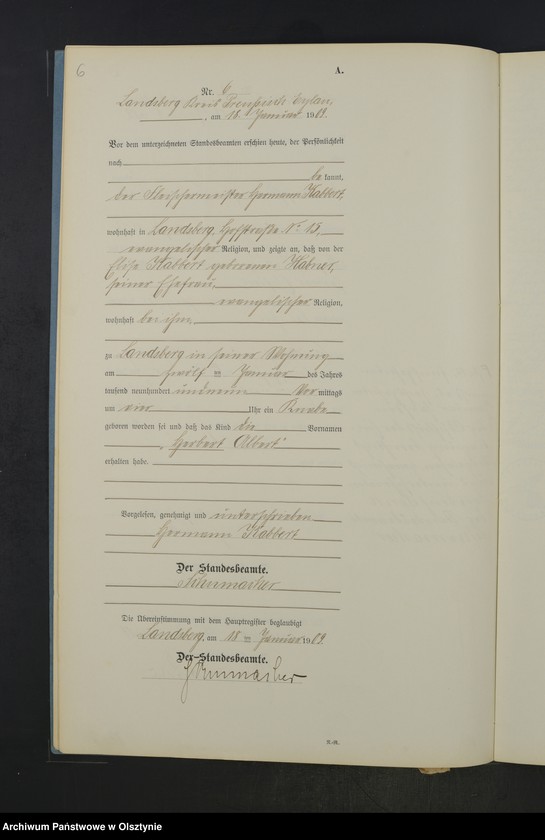 6
A.
Nr. 6
Landsberg Kreis Preußisch Eylau,
, am 18 Januar 1909.
Vor dem unterzeichneten Standesbeamten erschien heute, der Persönlichkeit
nach
be kannt,
der Hermann Kabbert,
wohnhaft in Landsberg, Hofstraße Nr 15,
evangelischer Religion, und zeigte an, daß von der
Kabbert geborenen Habner,
seiner Ehefrau
evangelischer Religion,
wohnhaft bei ihm,
zu Landsberg in seiner Wohnung
am zwölf ten Januar des Jahres
tausend neunhundert undneun Vor mittags
um vier Uhr ein Knabe
geboren worden sei und daß das Kind die Vornamen
„Herbert Albert“
erhalten habe.
Vorgelesen, genehmigt und unterschrieben
Hermann Kabbert
Der Standesbeamte.
Schumacher
Die Übereinstimmung mit dem Hauptregister beglaubigt
Landsberg, am 18 ten Januar 1909
Der Standesbeamte.
Schumacher
Archiwum Państwowe w Olsztynie